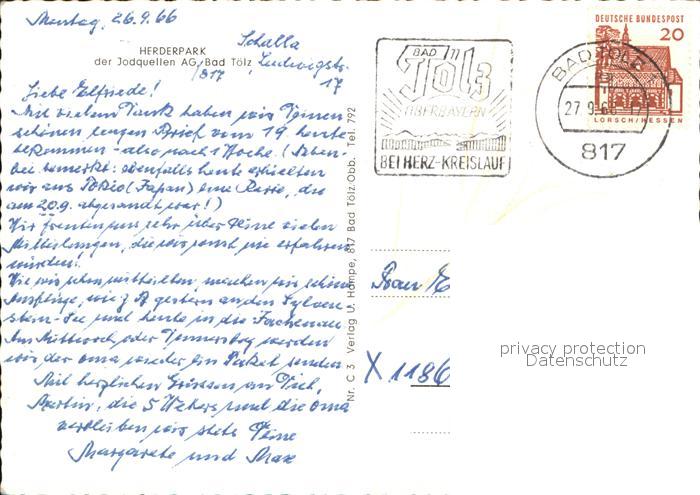 Montag, 26.9.66
HERDERPARK
der Jodquellen AG, Bad Tölz
Schalla
817 Ludwigstr.
17
Liebe Elfriede!
Mit vielem Dank haben wir Deinen
schönen langen Brief vom 19. heute
bekommen - also nach 1 Woche. (Neben-
bei bemerkt: ebenfalls heute erhielten
wir aus Tokio (Japan) eine Karte, die
am 20.9. abgesandt war!)
Wir freuten uns sehr über Deine vielen
Mitteilungen, die wir sonst nie erfahren
würden.
Wie wir schon mitteilten, machen wir schöne
Ausflüge, wie z.B. gestern an den Sylven-
stein-See und heute in die Jachenau.
Am Mittwoch oder Donnerstag werden
wir der Oma wieder ein Paket senden
Mit herzlichen Grüssen an Dich,
Martin, die 5 Webers und die Oma
verbleiben wir stets Deine
Margarete und Max
Nr. C 3 Verlag U. Hampe, 817 Bad Tölz, Obb. Tel. 792
BAD
Tölz
OBERBAYERN
BEI HERZ-KREISLAUF
BAD TÖLZ
27.9.66-17
817
DEUTSCHE BUNDESPOST
20
LORSCH/HESSEN
Frau E
X 1186
privacy protection
Datenschutz